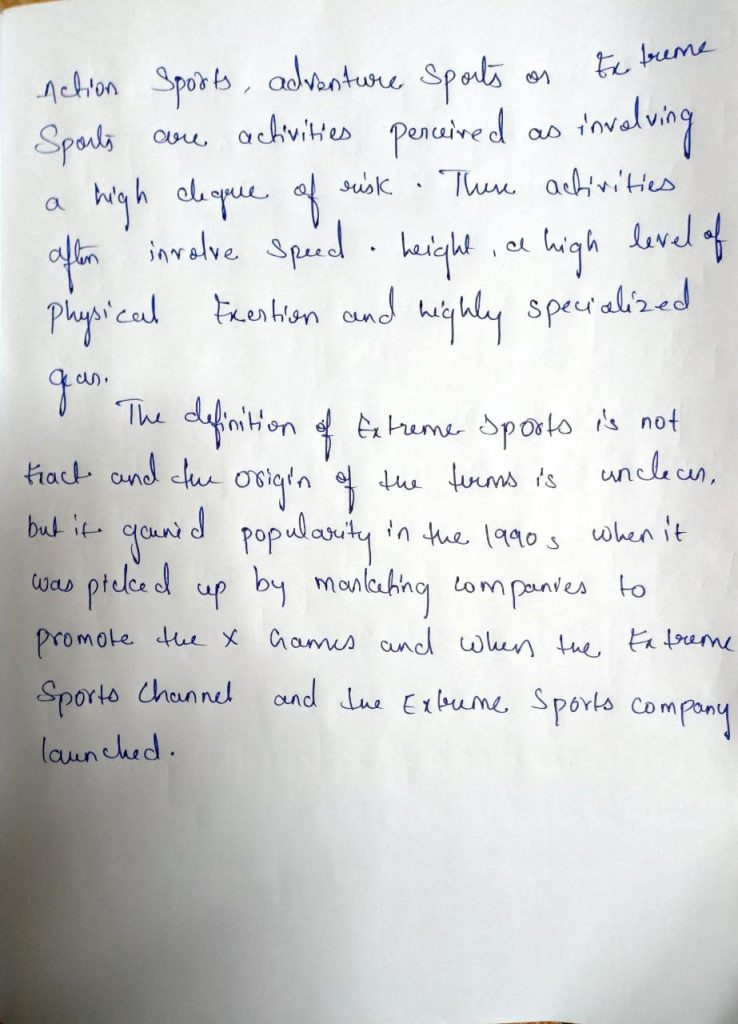 Action Sports, adventure Sports or Extreme
Sports are activities perceived as involving
a high degree of risk. These activities
often involve Speed. height, a high level of
physical Exertion and highly specialized
gear.
The definition of Extreme Sports is not
Exact and the origin of the terms is unclear,
but it gained popularity in the 1990s when it
was picked up by marketing companies to
promote the X Games and when the Extreme
Sports Channel and the Extreme Sports company
launched.